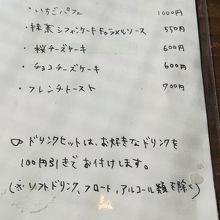 ・いちごパフェ 1000円
・抹茶シフォンケーキ キャラメルソース 550円
・桜チーズケーキ 600円
・チョコチーズケーキ 600円
・フレンチトースト 700円
ドリンクセットは、お好きなドリンクを
100円引きでお付けします。
(※ソフトドリンク、フロート、アルコール類を除く)